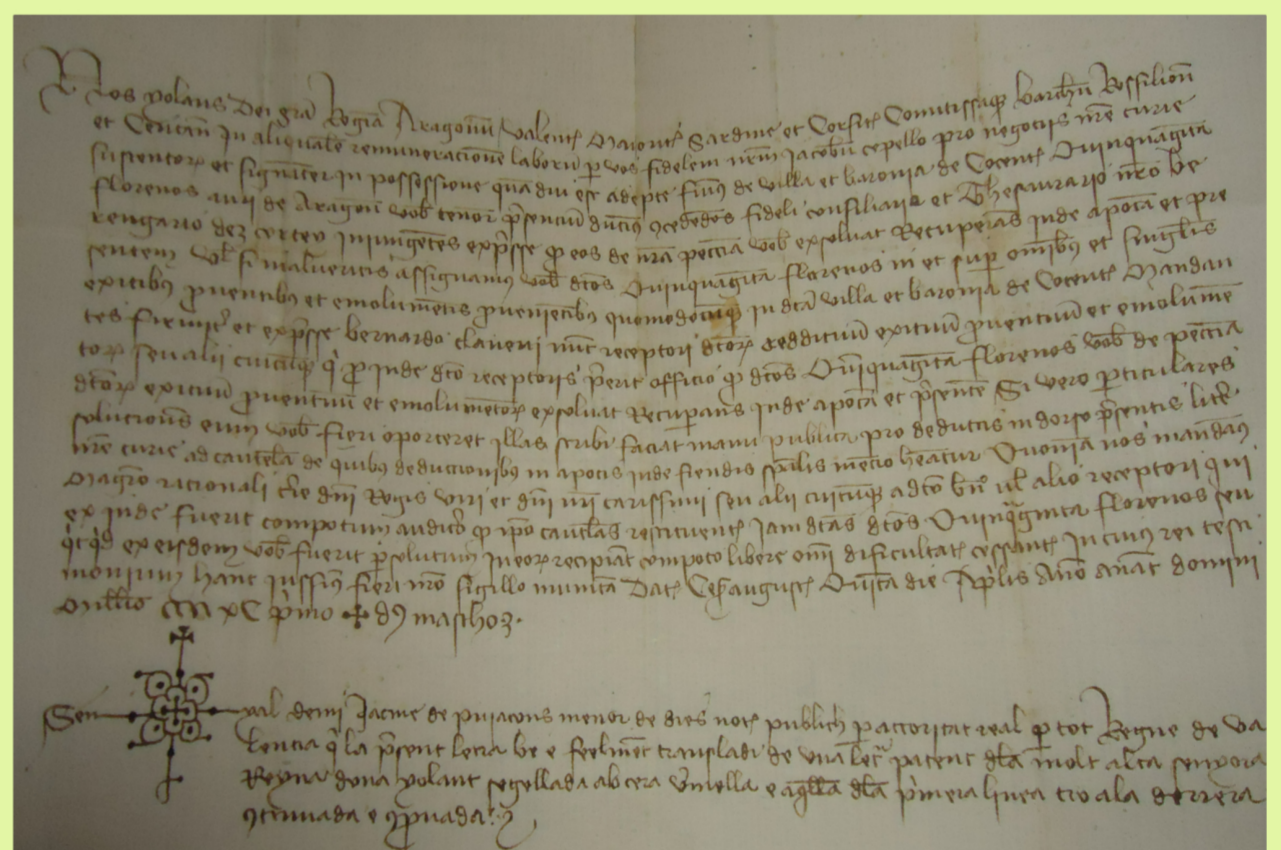 Nos yolans Dei gra Regia Aragonu Valent Maiorit Sardine et Corsice Comitissaq barchn Rossilion
et Ceritan In aliquale remuneracione laboru p vos fidelem nrm Jacobu cepello pro negociis nre curie
sustentor et signater in possessione qua diu est adepte fuim de villa et baronia de Cocent Quinquaginta
florenos auri de Aragon vob tenor presenciu ducim concededos fideli consiliario et Thesaurario nro be
rengario dez cortey iniungetes expresse q eos de nra peccia vob exsolvat Recuperas inde apoca et pre
sentem vel si malueritis assignamus vob dctos Quinquaginta florenos in et sup omibus et singulis
exitibus proventibus et emolumetis provenietibus quomodocuq in dcta villa et baronia de Cocent Mandan
tes firmiter et expresse bernardo claveri nuc receptori dctor reddituum exituum proventuum et emolume
tor seu alii cuicuq qi p inde dcto receptoris prerit officio q dctos Quinquaginta florenos vob de peccia
dctor exituum proventuum et emolumetor exsolvat Recuperans inde apoca et presente Si vero particulares
soluciones eum vob fieri oporteret illas scribi faciat manu publica pro deductis in dorso presentis litte
nre curie ad cautela de quibus deduccionibus in apocis inde fiendis spalis mecio heatur Quonia nos mandam
Magro racionali curie dni Regis viri et dni nri carissimi seu alii cuicuq a dcto bn vel alio receptori qui
ex inde fuerit compotum auditur q ipo cautelas restituent Jam dctas dctos Quinquaginta florenos seu
qicqid ex eisdem vob fuerit psolutum in eor recipiat compoto libere omi dificultate cessante In cuius rei testi
monium hanc iussim fieri nro sigillo munita Dat Cesaraugust Quita die Aprilis Ano a nat domini
Millio CCC XC primo + ds maschoz.
Sen-yal demi Jacme de puiacons menor de dies not publich p actoritat real p tot Regne de Va
lencia qi la present letra be e feelment transladi de una letra patent dla molt alta senyora
Reyna dona yolant segellada ab cera vmella e aqlla dla primera linea tro ala derrera
continuada e comprovada.